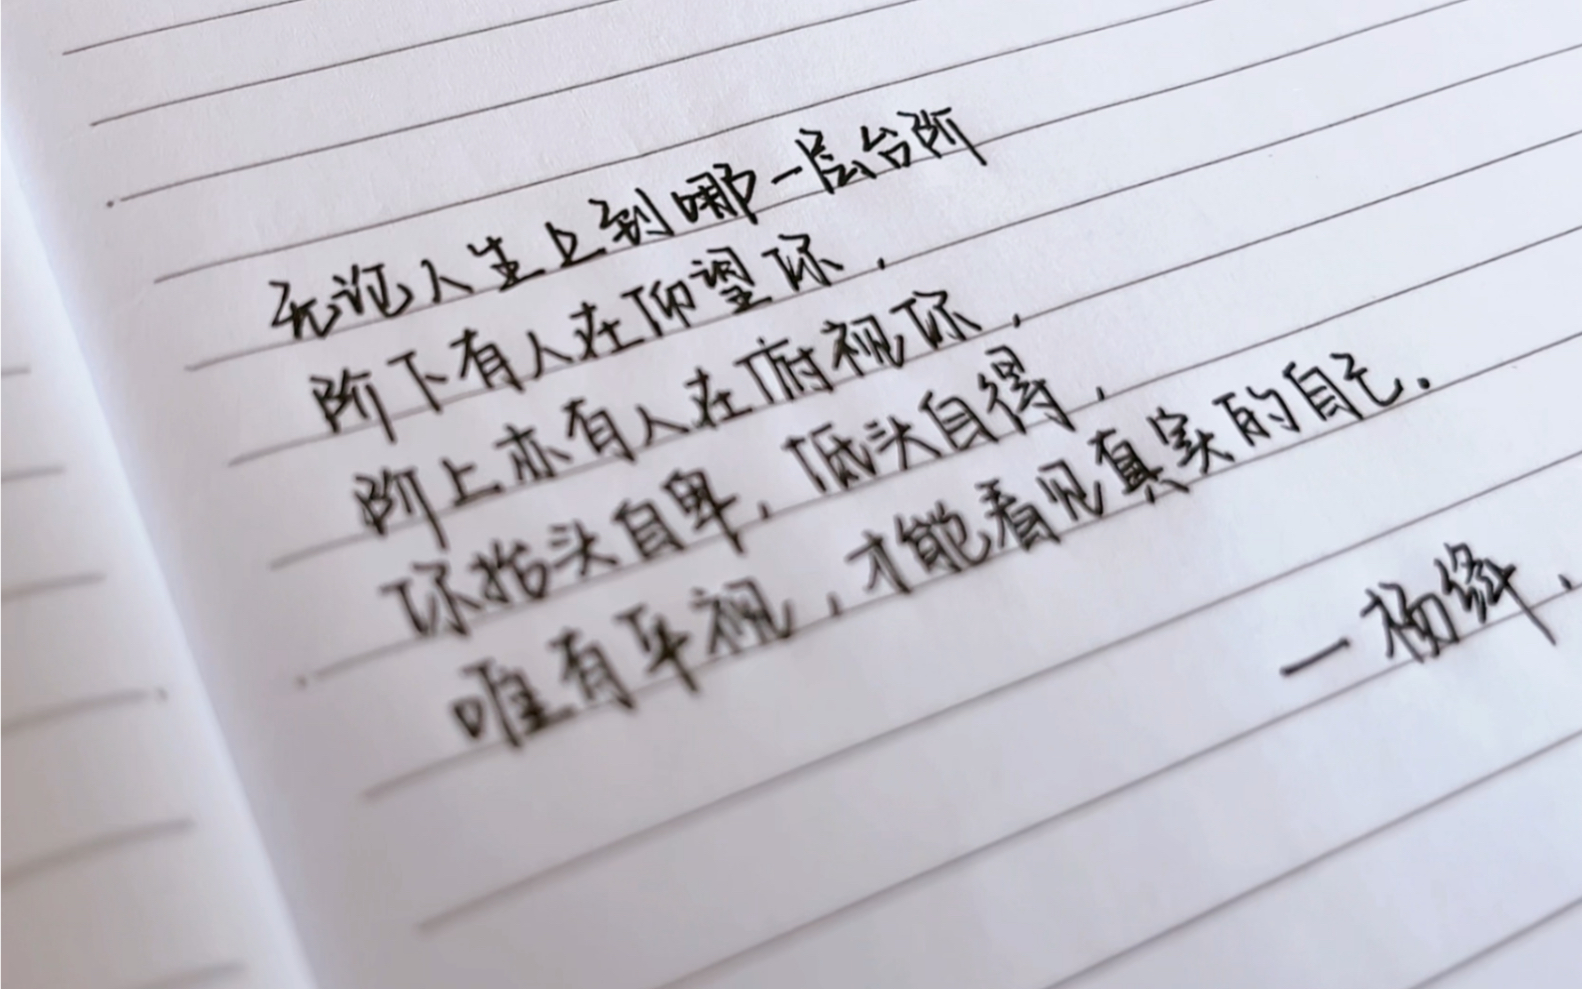 无论人生上到哪一层台阶
阶下有人在仰望你,
阶上亦有人在俯视你,
你抬头自卑,低头自得,
唯有平视,才能看见真实的自己.
一杨绛、